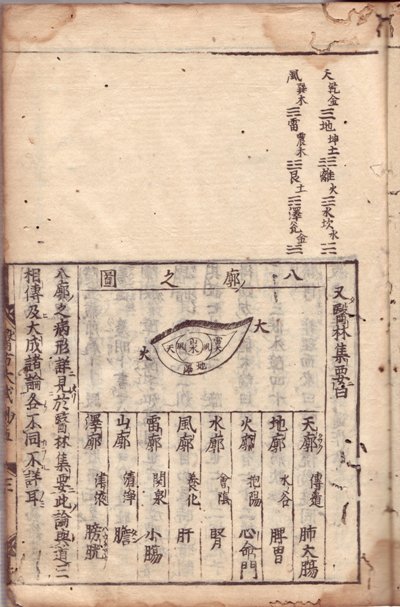 天乾金☰地坤土☷離火☲水坎水☵
風巽木☴雷震木☳艮土☶澤兌金☱
又醫林集要曰
八廓之圖
大
火
天
風
雷
地
天廓 傳送 肺大腸
地廓 水谷 脾胃
火廓 抱陽 心命門
水廓 會陰 腎
風廓 養化 肝
雷廓 関泉 小腸
山廓 清淨 膽
澤廓 津液 膀胱
八廓之病形詳見於醫林集要此論與道三
相傳及大成諸論各不同不詳耳